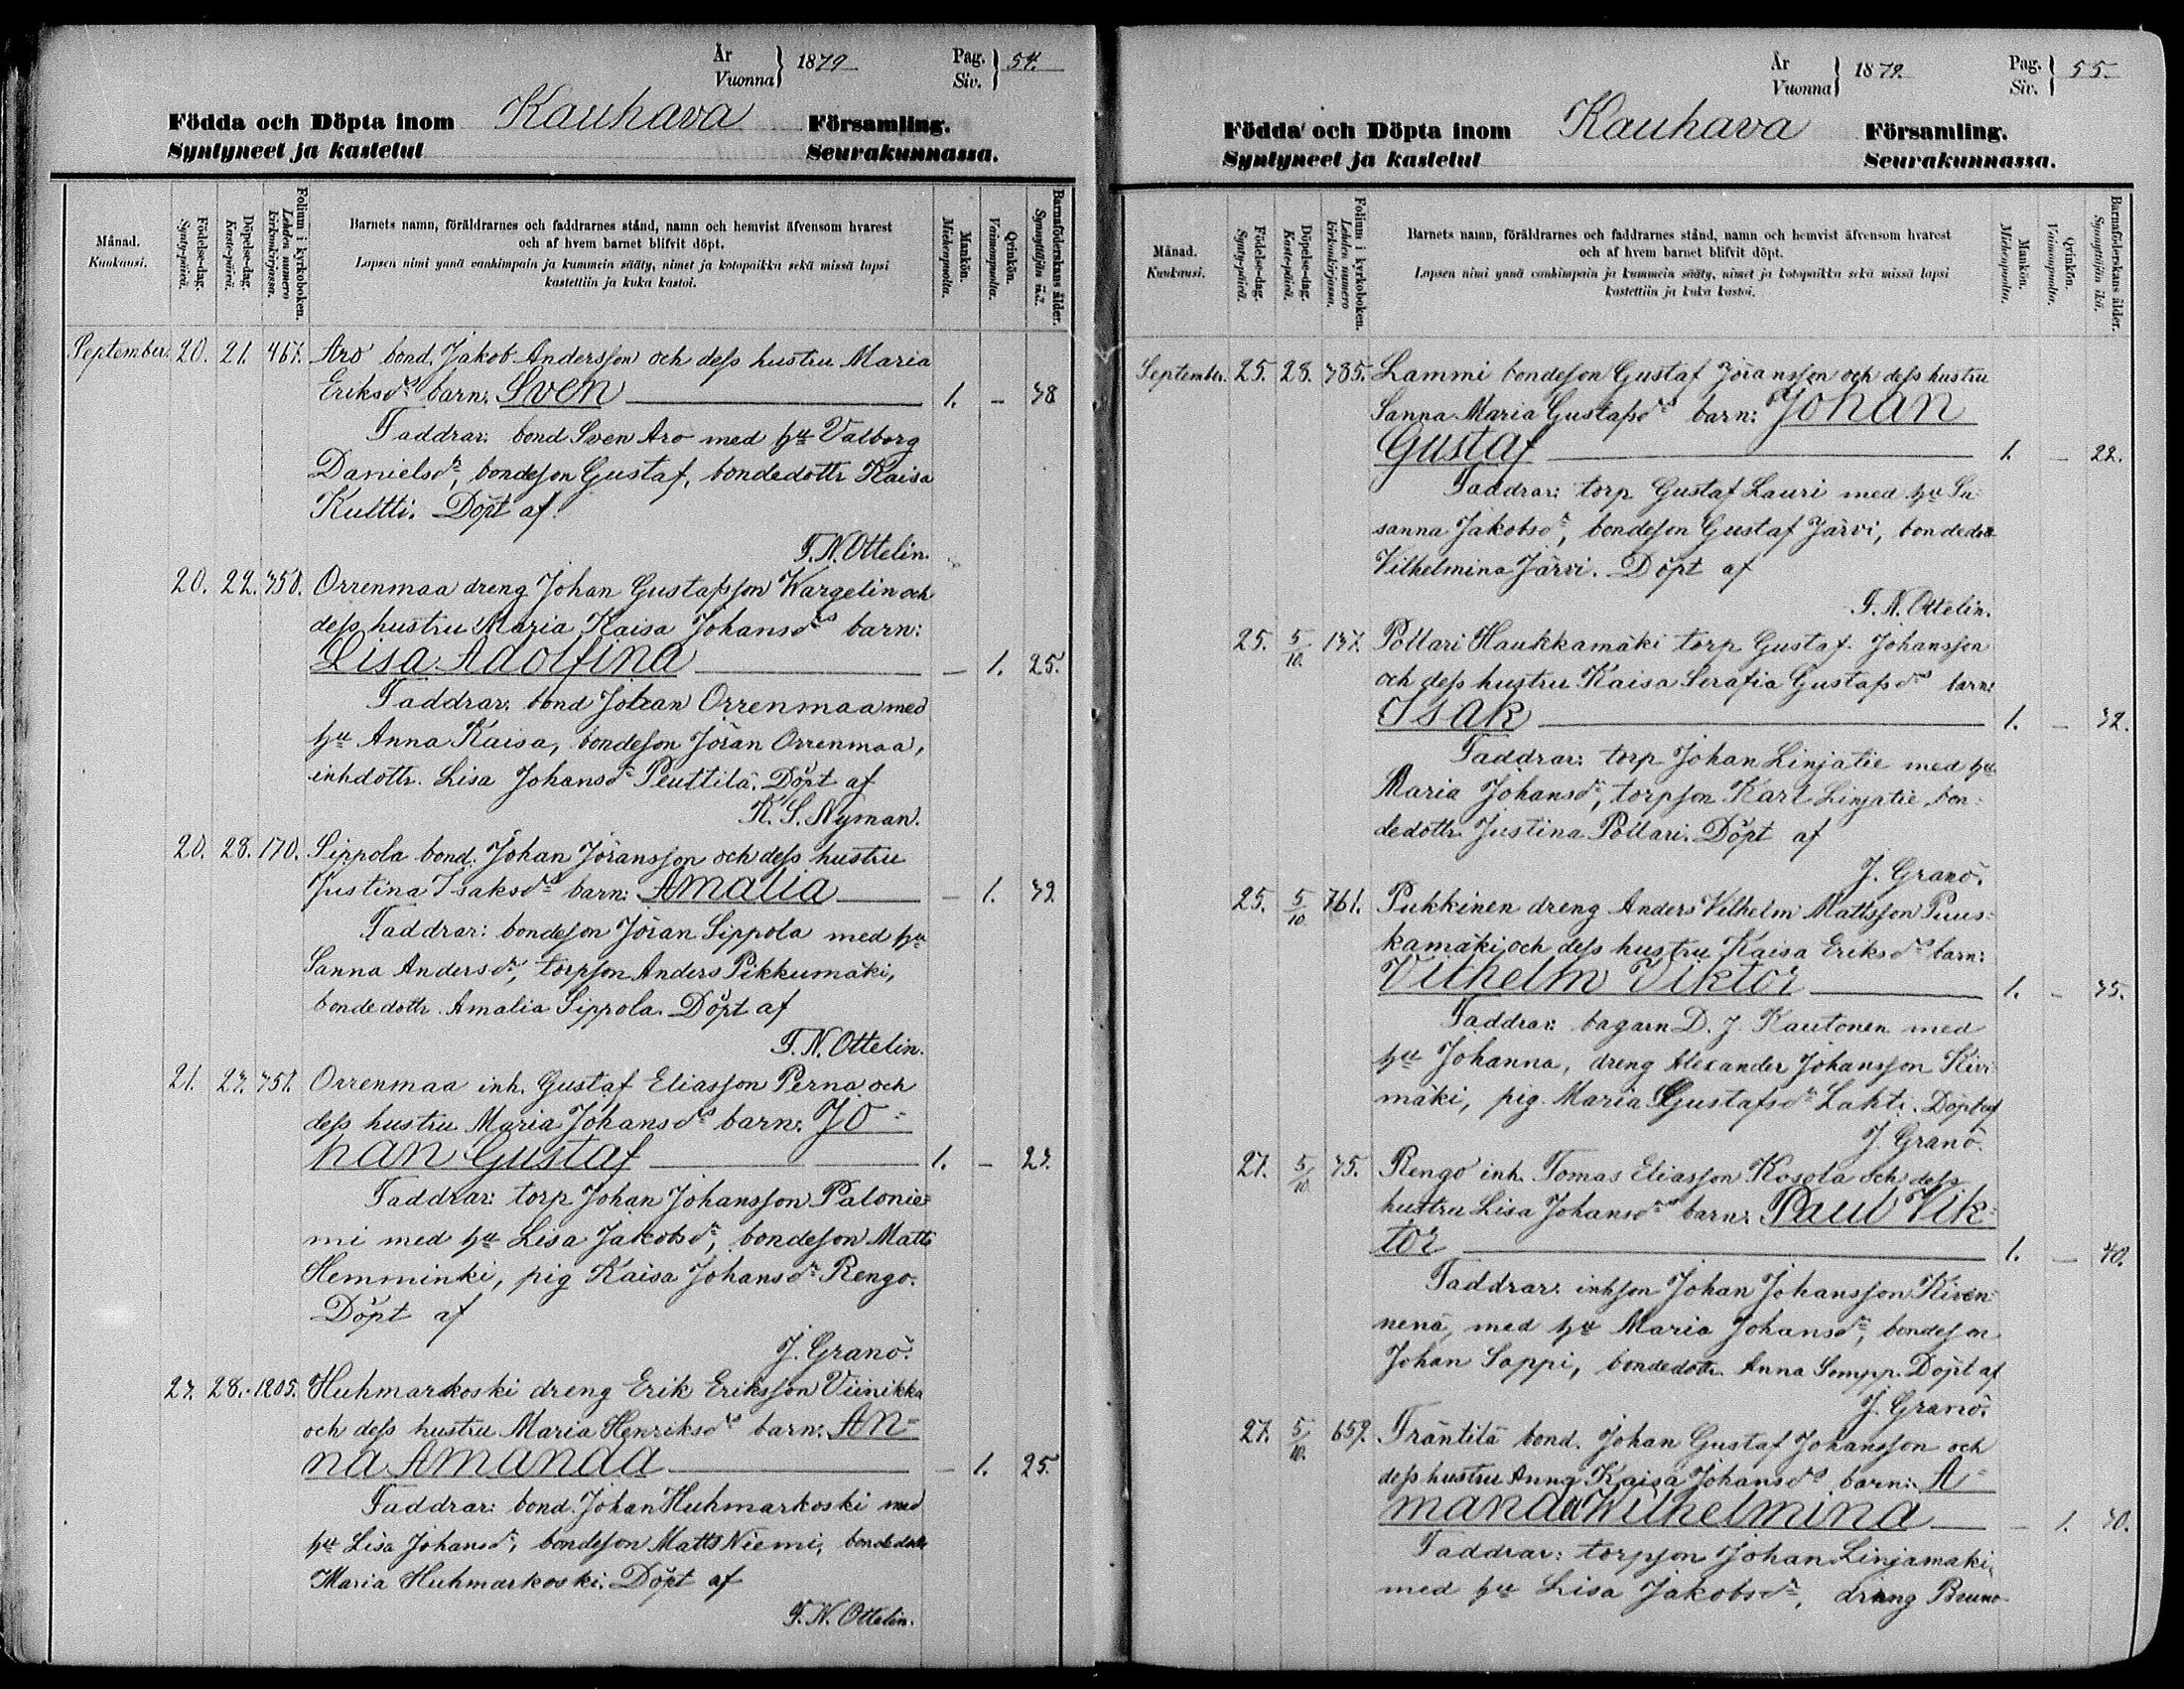 År
Vuonna } 1879
Pag.
Siv. } 54.
Födda och Döpta inom Kauhava Församling.
Syntyneet ja kastetut Seurakunnassa.
Månad.
Kuukausi.
Födelse-dag.
Synty-päivä.
Döpelse-dag.
Kaste-päivä.
Folium i kyrkoboken.
Lehden numero
kirkonkirjassa.
Barnets namn, föräldrarnes och faddrarnes stånd, namn och hemvist äfvensom hvarest
och af hvem barnet blifvit döpt.
Lapsen nimi ynnä vanhimpain ja kummein sääty, nimet ja kotopaikka sekä missä lapsi
kastettiin ja kuka kastoi.
Mankön.
Miehenpuolta.
Qvinkön.
Vaimonpuolta.
Barnaföderskans ålder.
Synnyttäjän ikä.
September. 20. 21. 467. Aro bond. Jakob Andersson och dess hustru Maria
Eriksdrs barn: Sven 1. - 38
Faddrar: bond Sven Aro med hu Valborg
Danielsdr, bondeson Gustaf, bondedottr Kaisa
Kultti. Döpt af
F. N. Ottelin.
20. 22. 758. Orrenmaa dreng Johan Gustafsson Kargelin och
dess hustru Maria Kaisa Johansdrs barn:
Lisa Adolfina - 1. 25.
Faddrar: bond Johan Orrenmaa med
hu Anna Kaisa, bondeson Jöran Orrenmaa,
inhdottr. Lisa Johansdr Penttilä. Döpt af
K. S. Nyman.
20. 28. 170. Sippola bond. Johan Jöransson och dess hustru
Justina Isaksdrs barn: Amalia - 1. 39.
Faddrar: bondeson Jöran Sippola med hu
Sanna Andersdr, torpson Anders Pikkumäki,
bondedottr. Amalia Sippola. Döpt af
F. N. Ottelin.
21. 27. 751. Orrenmaa inh. Gustaf Eliasson Perna och
dess hustru Maria Johansdrs barn: Jo=
han Gustaf 1. - 27.
Faddrar: torp Johan Johansson Palonie=
mi med hu Lisa Jakobsdr, bondeson Matts
Hemminki, pig Kaisa Johansdr Rengo.
Döpt af
J. Granö.
27. 28. 1205. Huhmarkoski dreng Erik Eriksson Viinikka
och dess hustru Maria Henriksdrs barn: An=
na Amanda - 1. 25.
Faddrar: bond. Johan Huhmarkoski med
hu Lisa Johansdr, bondeson Matts Niemi, bondedottr
Maria Huhmarkoski. Döpt af
F. N. Ottelin.
År
Vuonna } 1879.
Pag.
Siv. } 55.
Födda och Döpta inom Kauhava Församling.
Syntyneet ja kastetut Seurakunnassa.
Månad.
Kuukausi.
Födelse-dag.
Synty-päivä.
Döpelse-dag.
Kaste-päivä.
Folium i kyrkoboken.
Lehden numero
kirkonkirjassa.
Barnets namn, föräldrarnes och faddrarnes stånd, namn och hemvist äfvensom hvarest
och af hvem barnet blifvit döpt.
Lapsen nimi ynnä vanhimpain ja kummein sääty, nimet ja kotopaikka sekä missä lapsi
kastettiin ja kuka kastoi.
Mankön.
Miehenpuolta.
Qvinkön.
Vaimonpuolta.
Barnaföderskans ålder.
Synnyttäjän ikä.
September. 25. 28. 385. Lammi bondeson Gustaf Jöransson och dess hustru
Sanna Maria Gustafsdrs barn: Johan
Gustaf 1. - 22.
Faddrar: torp Gustaf Lauri med hu Su=
sanna Jakobsdr, bondeson Gustaf Järvi, bondedottr
Vilhelmina Järvi. Döpt af
F. N. Ottelin.
25. 5/10. 137. Pollari Haukkamäki torp Gustaf Johansson
och dess hustru Kaisa Serafia Gustafsdrs barn:
Isak 1. - 32.
Faddrar: torp Johan Linjatie med hu
Maria Johansdr, torpson Karl Linjatie, bon=
dedottr. Justina Pollari. Döpt af
J. Granö.
25. 5/10. 761. Pukkinen dreng Anders Vilhelm Mattsson Puus=
kamäki och dess hustru Kaisa Eriksdrs barn:
Vilhelm Viktor 1. - 35.
Faddrar: bagarn D. J. Kautonen med
hu Johanna, dreng Alexander Johansson Kivi
mäki, pig. Maria Gustafsdr Lahti. Döpt af
J. Granö.
27. 5/10. 75. Rengo inh. Tomas Eliasson Kosola och dess
hustru Lisa Johansdrs barn: Paul Vik=
tor 1. - 40.
Faddrar: inhson Johan Johansson Kiven=
nenä, med hu Maria Johansdr, bondeson
Johan Sappi, bondedottr. Anna Sompp. Döpt af
J. Granö.
27. 5/10. 659. Träntilä bond. Johan Gustaf Johansson och
dess hustru Anna Kaisa Johansdrs barn: A=
manda Wilhelmina - 1. 30.
Faddrar: torpson Johan Linjamäki,
med hu Lisa Jakobsdr, dräng Bruno